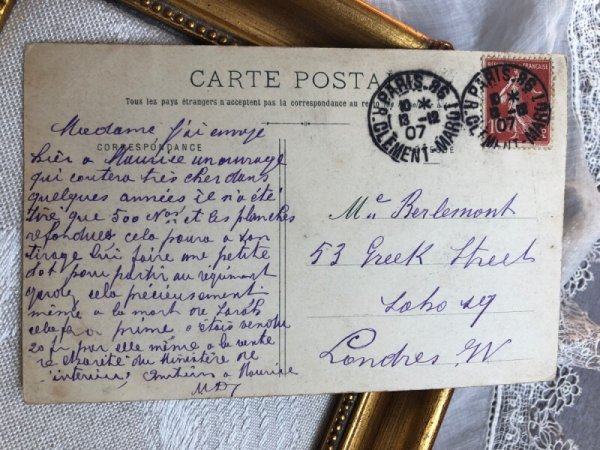 CARTE POSTALE
Tous les pays étrangers n'acceptent pas la correspondance au
CORRESPONDANCE
Madame J'ai envoyé
hier a Maurice un ouvrage
qui coutera très cher dans
quelques années il n'a été
tiré que 500 Nos et les planches
refondues cela poura a son
tirage lui faire une petite
dot pour partir au régiment
cela précieusement
même a la mort de Sarah
prime
20 fr par elle même a la vente
de charité du Ministère de
intérieur a Maurice
PARIS.86
10 *
13 -12
07
R. CLÉMENT-MAROT
PARIS.86
13 -12
07
R. CLÉMENT-MAROT
Berlemont
53 Greek Street
Soho sq
Londres W